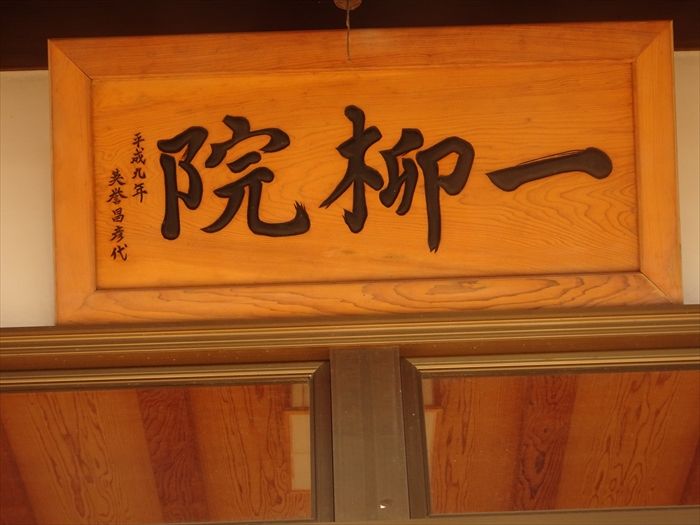 一柳院
平成九年
英誉昌彦代